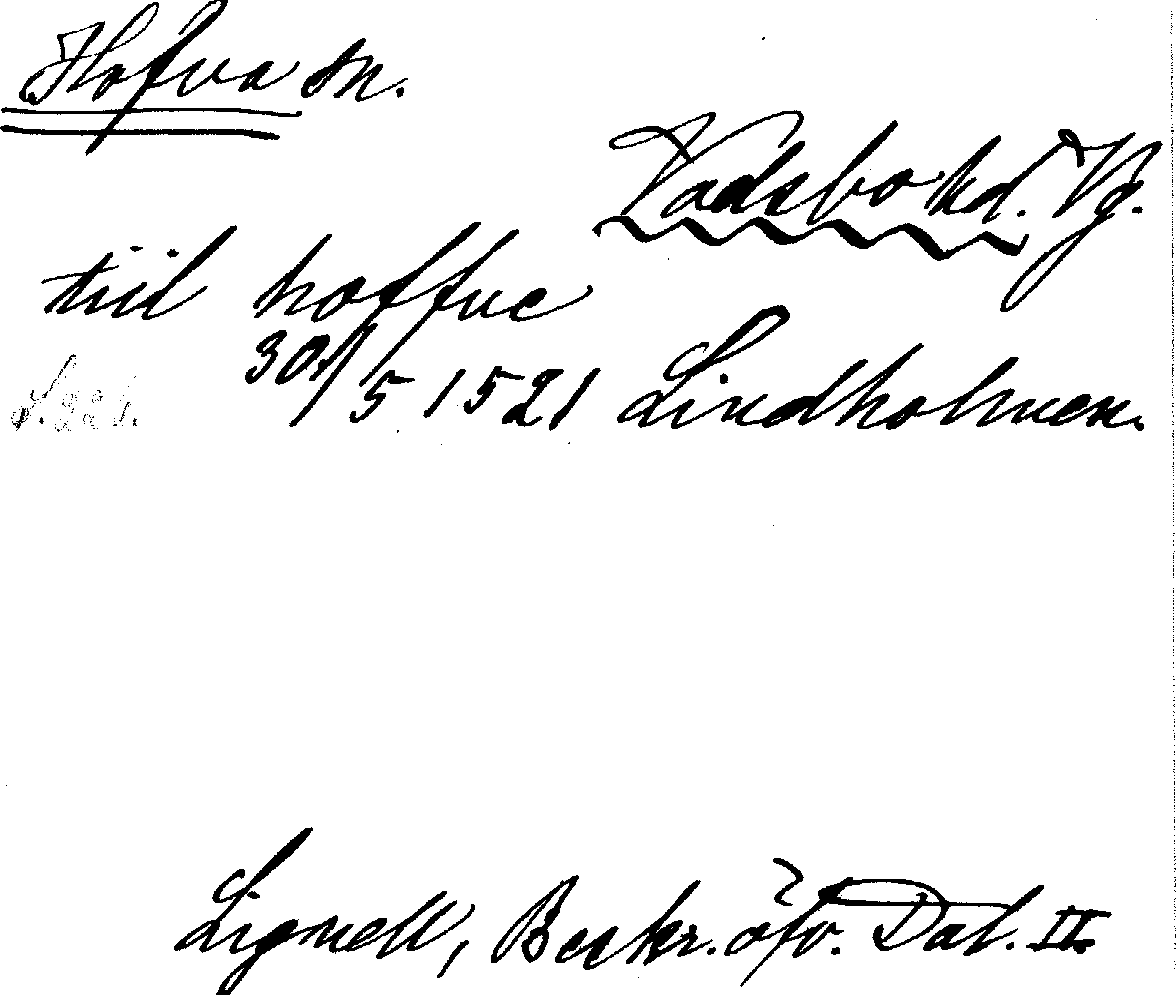 Hofva sn.
Vadsbo hd. Vg.
tiil hoffue
30/5 1521 Lindholmen.
S. 221.
Lignell, Beskr. öfv. Dal. II.